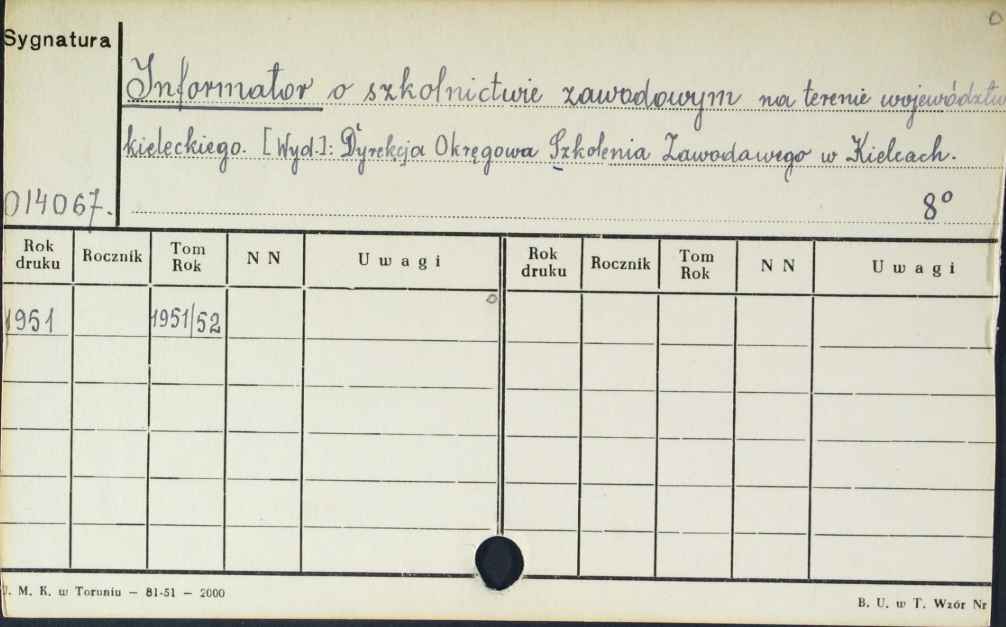 Sygnatura
Informator o szkolnictwie zawodowym na terenie województw
kieleckiego. [Wyd.]: Dyrekcja Okręgowa Szkolenia Zawodawego w Kielcach.
014067. 8°
Rok druku Rocznik Tom Rok N N Uwagi Rok druku Rocznik Tom Rok N N Uwagi
1951 1951/52
. M. K. w Toruniu — 81-51 — 2000
B. U. w T. Wzór Nr